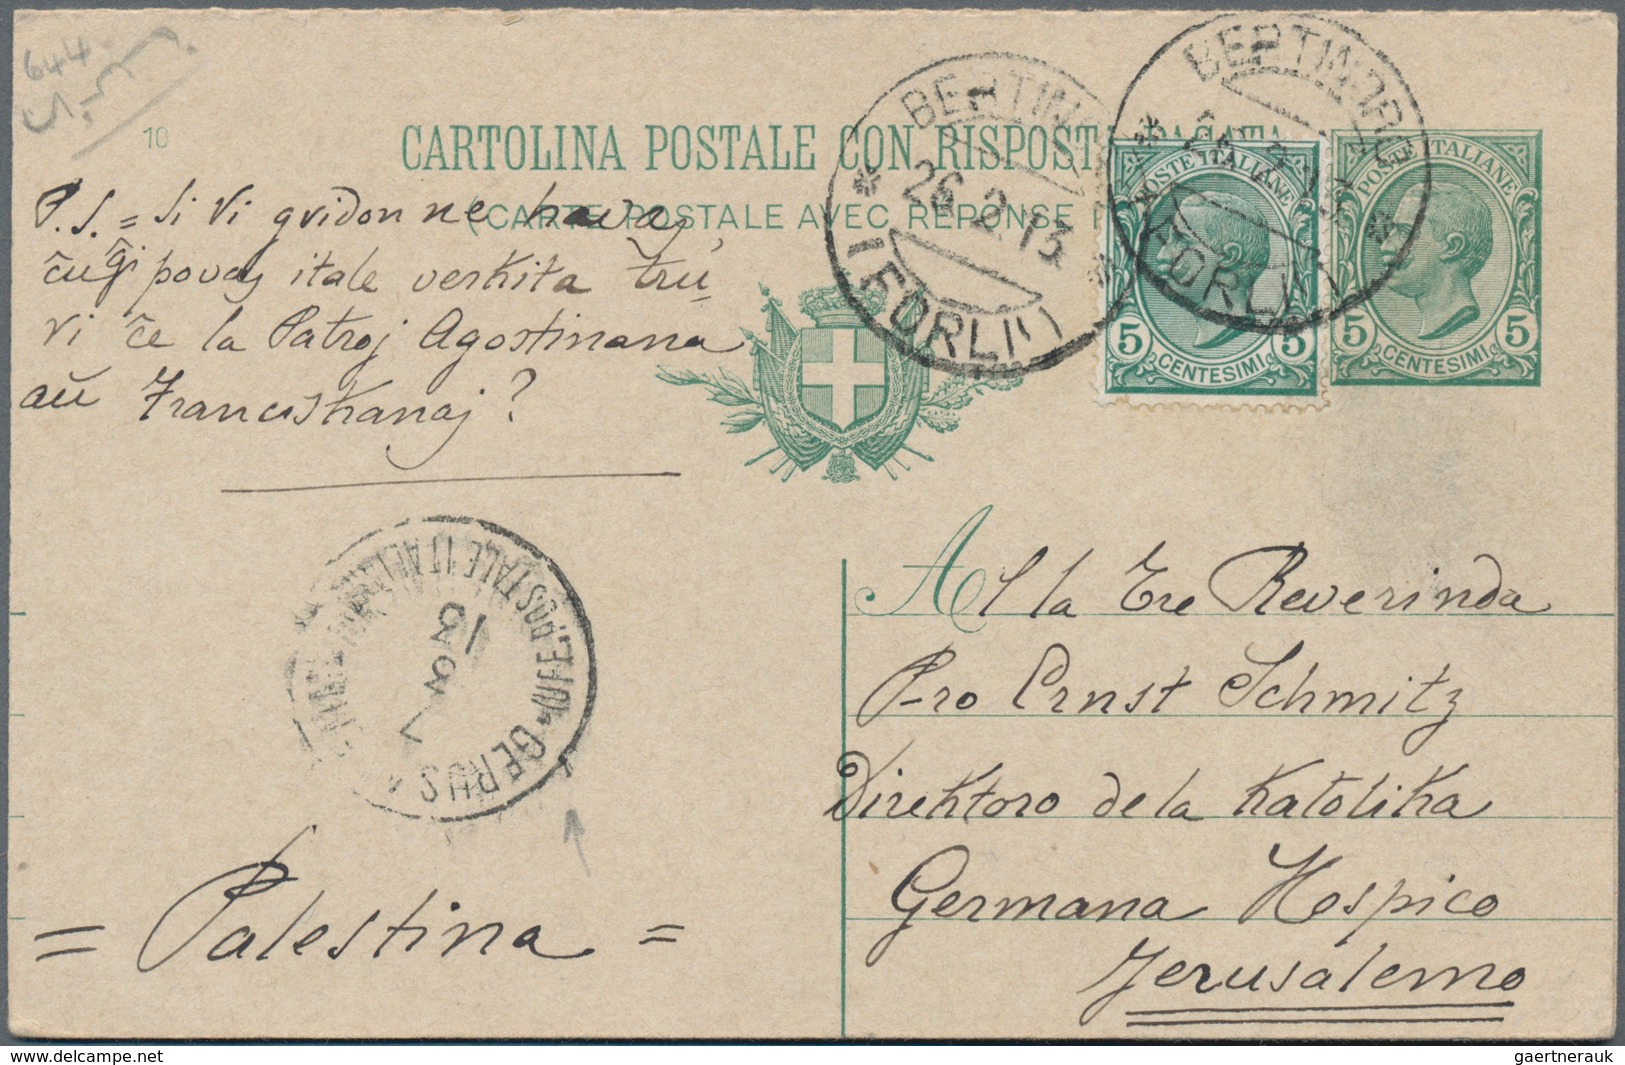 644
10
CARTOLINA POSTALE CON RISPOSTA PAGATA
(CARTE POSTALE AVEC RÉPONSE
BERTINORO
26.2.13
(FORLI)
BERTINORO
(FORLI)
POSTE ITALIANE
5 CENTESIMI 5
POSTE ITALIANE
5 CENTESIMI 5
P.S. = Si Vi gvidon ne havas,
ĉu ĝi povas itale verkita tru-
vi ĉe la Patroj Agostinana
aŭ Franciskanaj?
UFF. POSTALE ITAL
13
GERUS
Alla Tre Reverinda
Pro Ernst Schmitz
Direktoro de la Katolika
Germana Hospico
Jerusalemo
= Palestina =
gaertnerauk @ delcampe.net